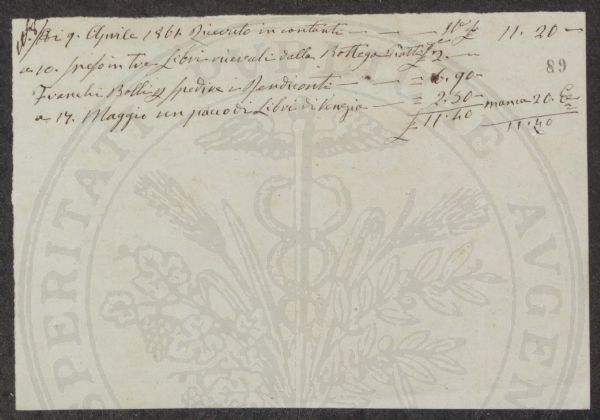 Ai 9. Aprile 1861 Ricevuto in contanti — 11. 20
a 10. Speso in tre Libri ricevuti dalla Bottega £ 2. —
Franchi Bolli per Spedire i Rendiconti — = 6. 90 —
a 17. Maggio un pacco di Libri di Venezia — = 2. 50 — manca 20. C
£ 11. 40 11. 40
89
PERITAT AVGE